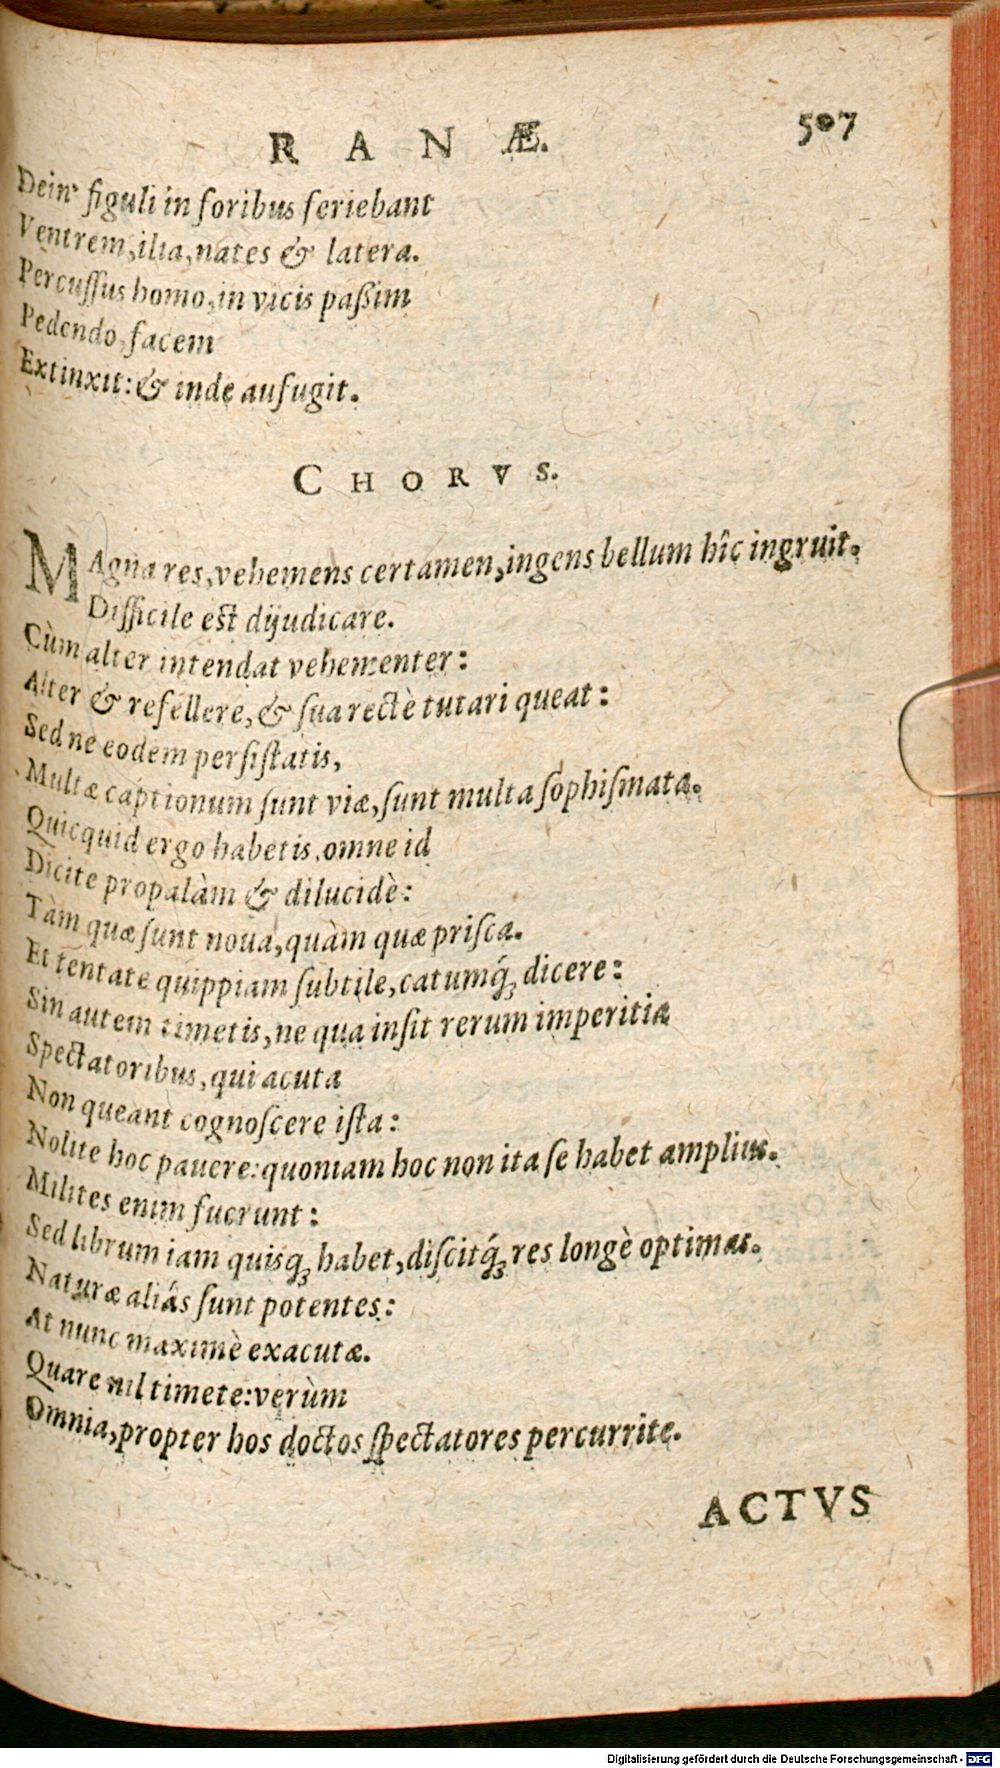 RANÆ. 507
Dein' figuli in foribus feriebant
Ventrem, ilia, nates & latera.
Percuſſus homo, in vicis paßim
Pedendo, facem
Extinxit: & inde aufugit.
CHORVS.
MAgna res, vehemens certamen, ingens bellum hîc ingruit.
Difficile est dijudicare.
Cùm alter intendat vehementer:
Alter & refellere, & ſua rectè tutari queat:
Sed ne eodem perſiſtatis,
Multæ captionum ſunt viæ, ſunt multa ſophiſmata.
Quicquid ergo habetis, omne id
Dicite propalàm & dilucidè:
Tàm quæ ſunt noua, quàm quæ priſca.
Et tentate quippiam ſubtile, catumq́ꝫ dicere:
Sin autem timetis, ne qua inſit rerum imperitia
Spectatoribus, qui acuta
Non queant cognoſcere iſta:
Nolite hoc pauere: quoniam hoc non ita ſe habet amplius.
Milites enim fuerunt:
Sed librum iam quisqꝫ habet, diſcitq́ꝫ res longè optimas.
Naturæ aliás ſunt potentes:
At nunc maximè exacutæ.
Quare nil timete: verùm
Omnia, propter hos doctos ſpectatores percurrite.
ACTVS
Digitalisierung gefördert durch die Deutsche Forschungsgemeinschaft - DFG